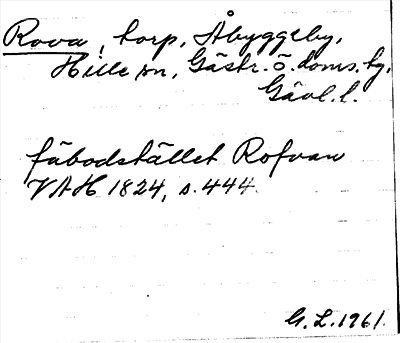 Rova, torp, Åbyggeby,
Hille sn, Gästr. Ö. doms. tg,
Gävl. l.
fäbodstället Rofvan
VAH 1824, s. 444.
G. L. 1961.